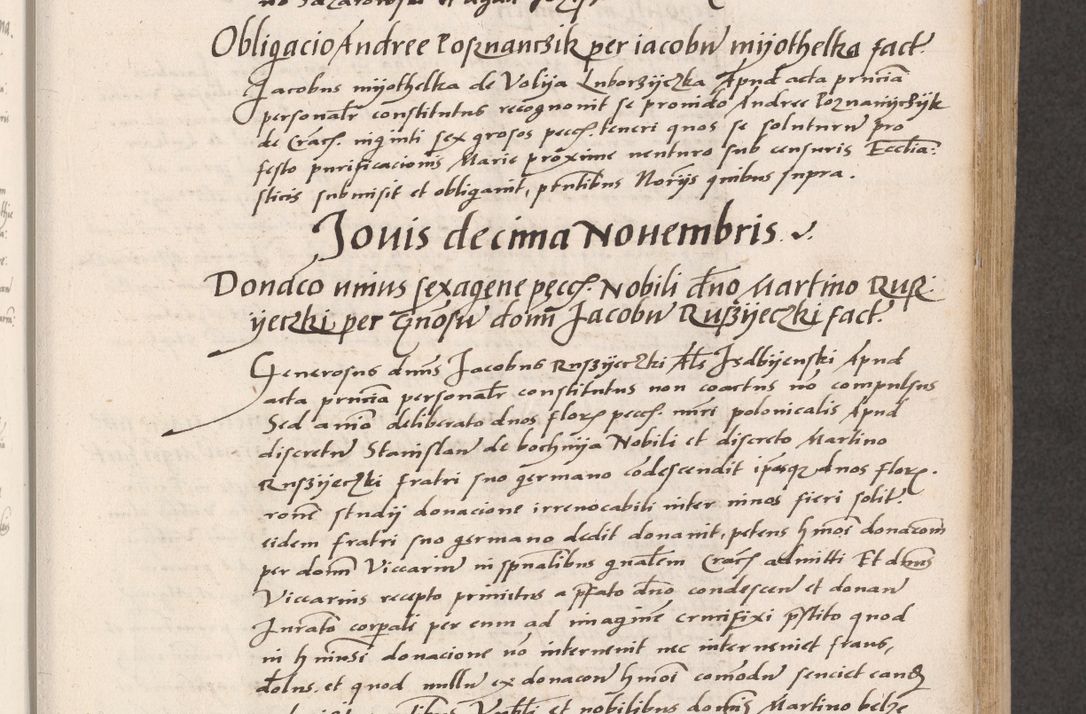 Obligacio Andree Posznanczik per iacobū mijothelka fact.
Jacobus mijothelka de Volija Luborzijczka Apud acta prncia
personalr constitutus recognouit se prouido Andree Poznanijczijk
de Crach. viginti sex grosos pecch. teneri quos se soluturū pro
festo purificacionis Marie proxime uenturo sub censuris Ecclia:
sticis submisit et obligauit, pntibus Norijs quibus supra.
Jouis decima Nouembris
Donacō unius sexagene pecch. Nobili dno Martino Rus:
ijeczki per Gnosū domū Jacobū Ruszijeczki fact.
Generosus dnus Jacobus Ruszijeczki Als Jsdbijenski Apud
acta prncia personalr constitutus non coactus nō compulsus
Sed animo deliberato duos flor pecch. nūri polonicalis Apud
discretū Stanislaū de bochnija Nobili et discreto Martino
Ruszijeczki fratri suo germano cōdescendit ipsosque duos flor.
ronē studij donacione irreuocabili inter uiuos fieri solit
eidem fratri suo germano dedit donauit, petens hmoi donacom
per domū Viccariū in spualibus gnalem Crach admitti Et dnus
Viccarius recepto primitus a pfato dno condescen et donan
Juramto corpali per eum ad imaginē crucifixi pstito quod
in hmiusi donacione nō interuenit nec interueniet fraus,
dolus. et quod nullū ex donacon hmoi comodū senciet
Martino